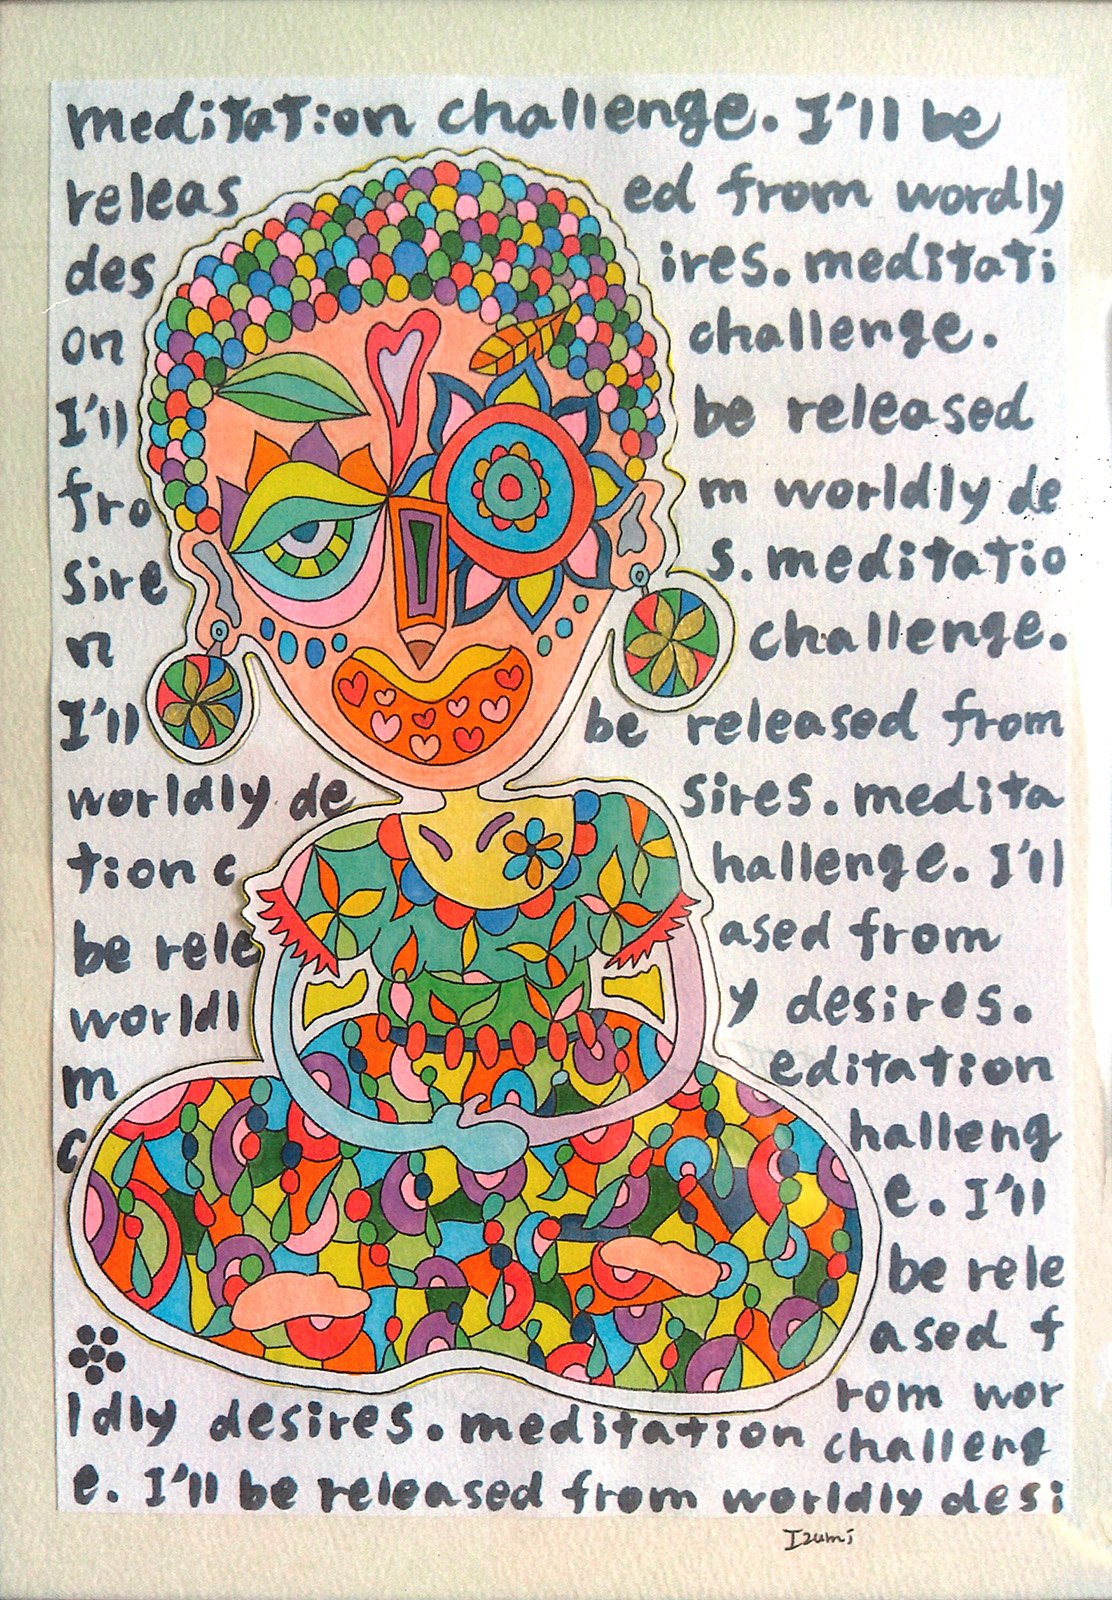 meditation challenge. I'll be
releas ed from wordly
des ires. meditati
on challenge.
I'll be released
fro m worldly de
sire s. meditatio
n challenge.
I'll be released from
worldly de sires. medita
tion c hallenge. I'll
be rele ased from
worldl y desires.
m editation
c halleng
e. I'll
be rele
ased f
rom wor
ldly desires. meditation challeng
e. I'll be released from worldly desi
Izumi